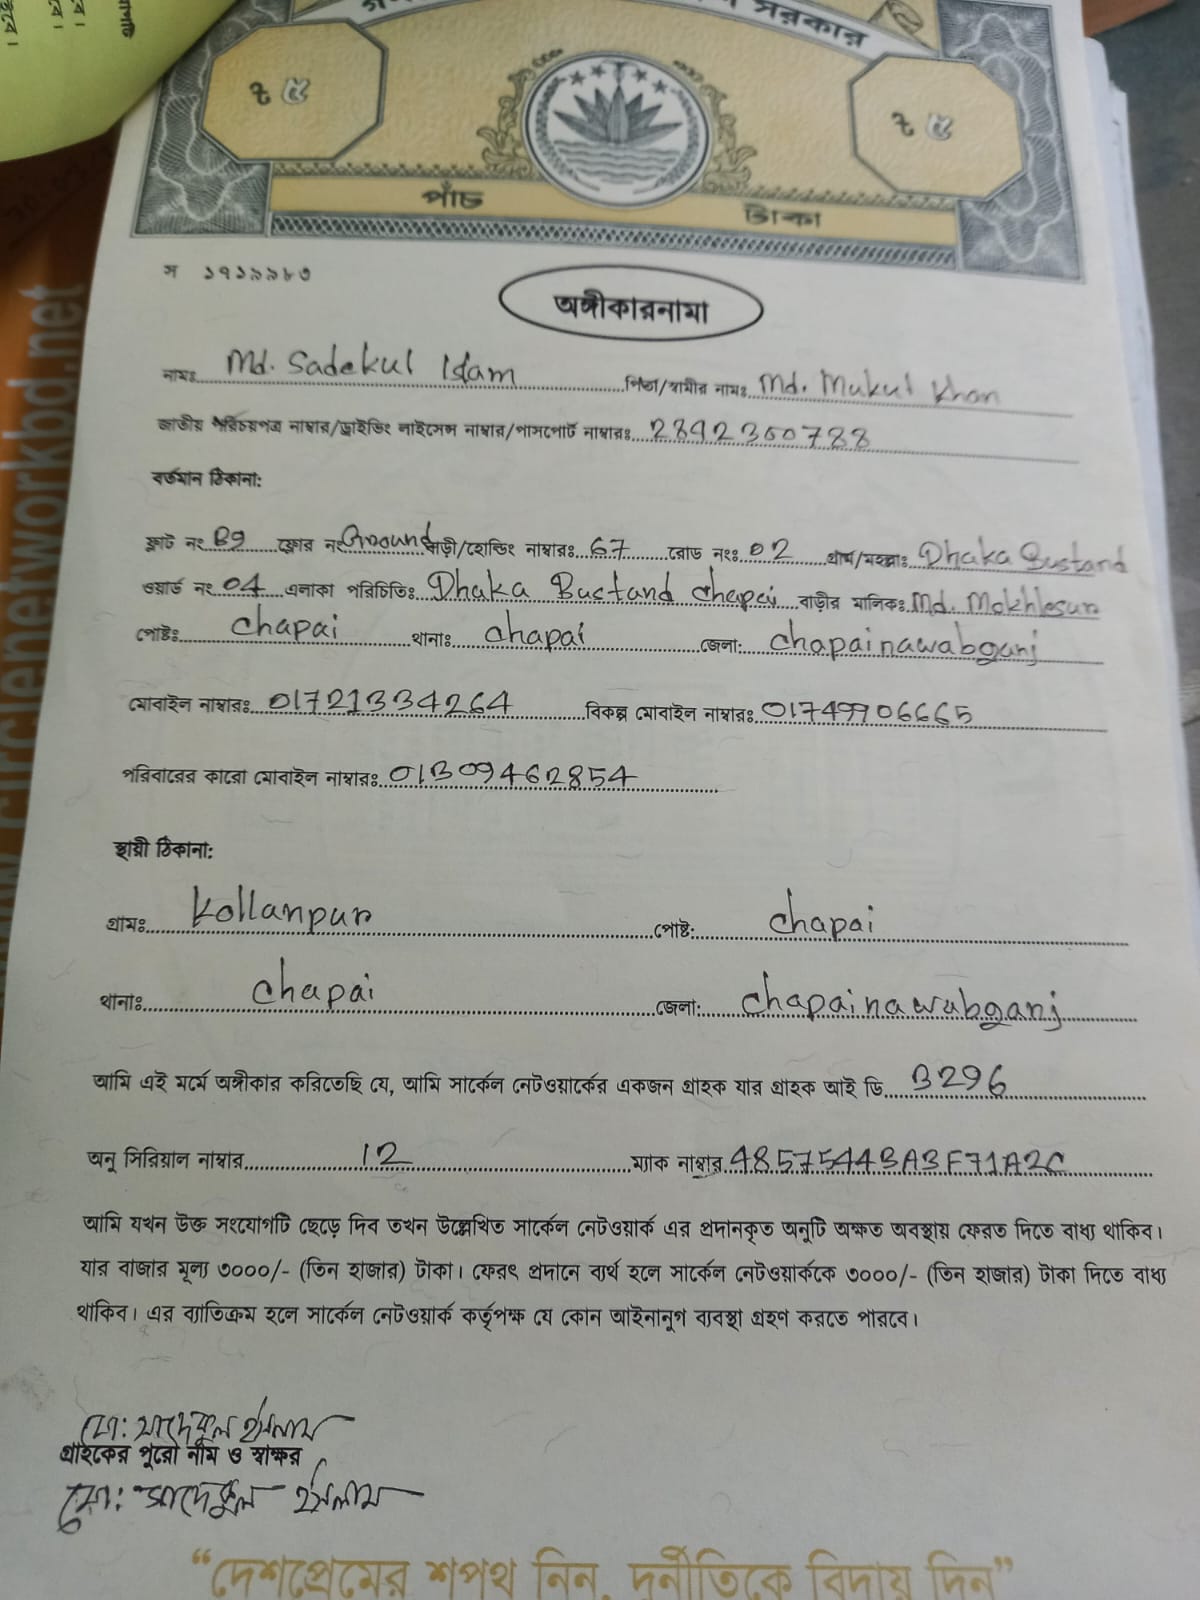 সরকার
৳ ৫
৳ ৫
পাঁচ টাকা
স ১৭১৯৯৮৩
অঙ্গীকারনামা
নামঃ Md. Sadekul Islam পিতা/স্বামীর নামঃ Md. Mukul Khan
জাতীয় পরিচয়পত্র নাম্বার/ড্রাইভিং লাইসেন্স নাম্বার/পাসপোর্ট নাম্বারঃ 2892360788
বর্তমান ঠিকানা:
ফ্লাট নং B9 ফ্লোর নং Ground বাড়ী/হোল্ডিং নাম্বারঃ 67 রোড নংঃ 02 গ্রাম/মহল্লাঃ Dhaka Bustand
ওয়ার্ড নং 04 এলাকা পরিচিতিঃ Dhaka Bustand Chapai বাড়ীর মালিকঃ Md. Mokhlesur
পোষ্টঃ Chapai থানাঃ Chapai জেলা: Chapainawabganj
মোবাইল নাম্বারঃ 01721334264 বিকল্প মোবাইল নাম্বারঃ 01749906665
পরিবারের কারো মোবাইল নাম্বারঃ 01309462854
স্থায়ী ঠিকানা:
গ্রামঃ Kollanpur পোষ্ট: Chapai
থানাঃ Chapai জেলা: Chapainawabganj
আমি এই মর্মে অঙ্গীকার করিতেছি যে, আমি সার্কেল নেটওয়ার্কের একজন গ্রাহক যার গ্রাহক আই ডি B296
অনু সিরিয়াল নাম্বার 12 ম্যাক নাম্বার 48575443A3F71A2C
আমি যখন উক্ত সংযোগটি ছেড়ে দিব তখন উল্লেখিত সার্কেল নেটওয়ার্ক এর প্রদানকৃত অনুটি অক্ষত অবস্থায় ফেরত দিতে বাধ্য থাকিব।
যার বাজার মূল্য ৩০০০/- (তিন হাজার) টাকা। ফেরৎ প্রদানে ব্যর্থ হলে সার্কেল নেটওয়ার্ককে ৩০০০/- (তিন হাজার) টাকা দিতে বাধ্য
থাকিব। এর ব্যাতিক্রম হলে সার্কেল নেটওয়ার্ক কর্তৃপক্ষ যে কোন আইনানুগ ব্যবস্থা গ্রহণ করতে পারবে।
মো: সাদেকুল ইসলাম
গ্রাহকের পুরো নাম ও স্বাক্ষর
মো: সাদেকুল ইসলাম
“দেশপ্রেমের শপথ নিন, দুর্নীতিকে বিদায় দিন”
www.circlenetworkbd.net